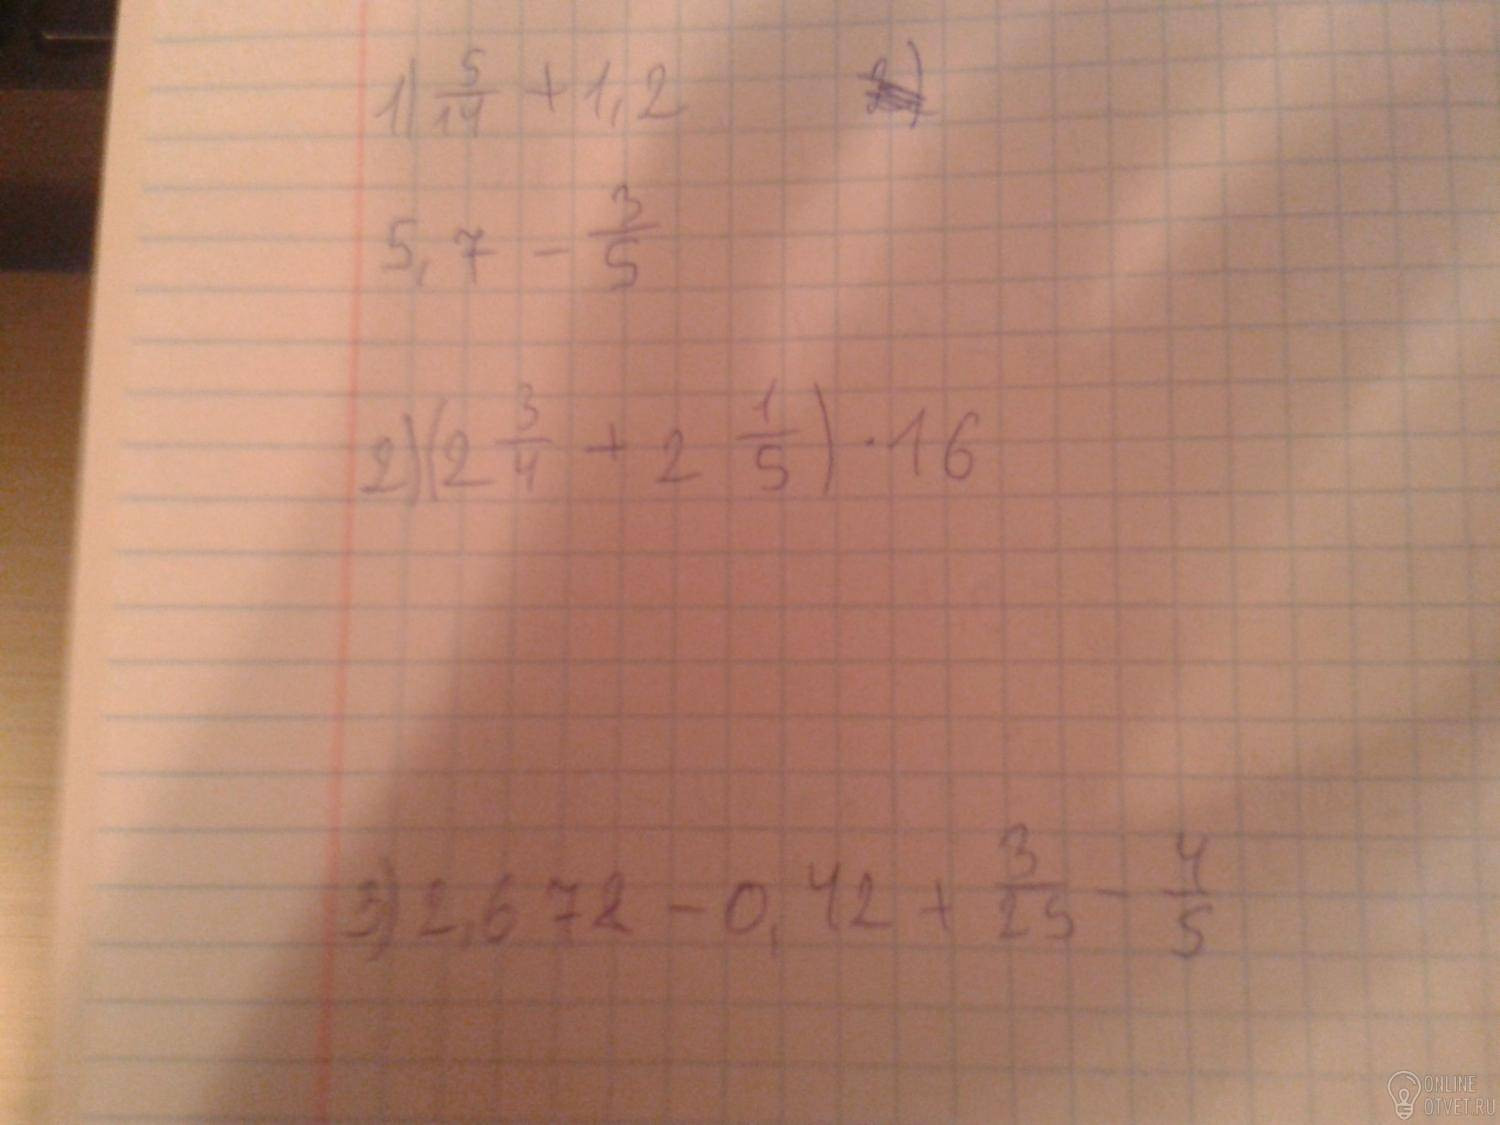 1) 5/14 + 1,2
5,7 - 3/5
2) (2 3/4 + 2 1/5) · 16
3) 2,672 - 0,42 + 3/25 - 4/5
ONLINE
OTVET.RU